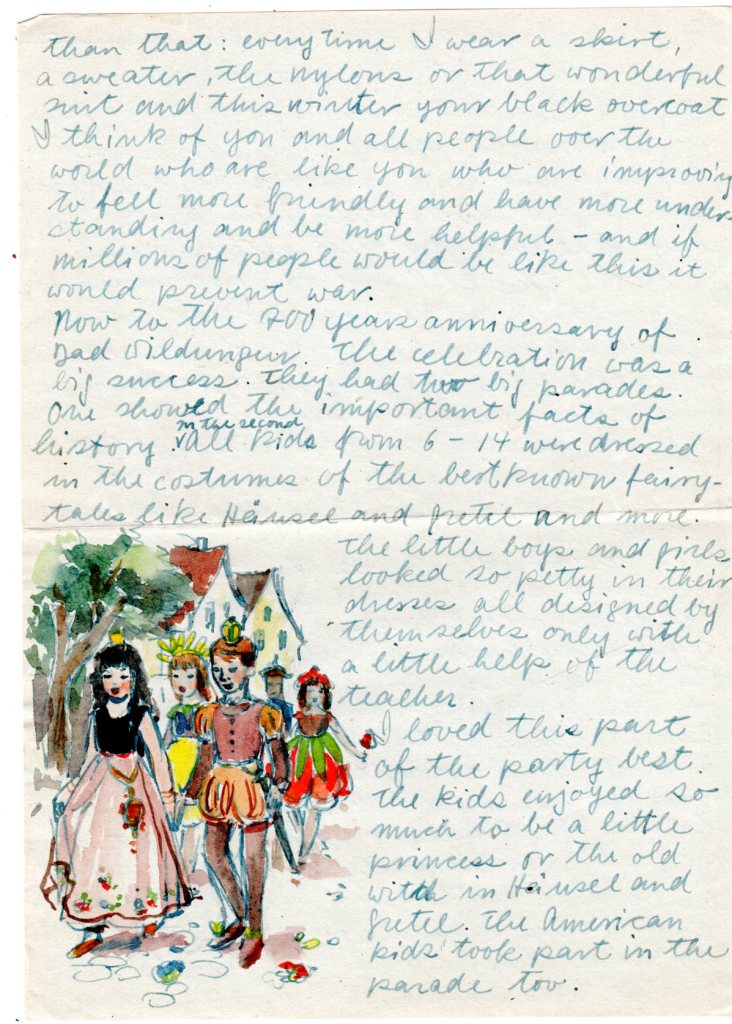 than that: everytime I wear a skirt,
a sweater, the nylons or that wonderful
suit and this winter your black overcoat
I think of you and all people over the
world who are like you who are improving
to fell more friendly and have more under-
standing and be more helpful – and if
millions of people would be like this it
would prevent war.
Now to the 700 years anniversary of
Bad Wildungen. The celebration was a
big success. They had two big parades.
One showed the important facts of
in the second
history. all kids from 6 – 14 were dressed
in the costumes of the bestknown fairy-
tales like Hänsel and Gretel and more.
The little boys and girls
looked so petty in their
dresses all designed by
themselves only with
a little help of the
teacher.
I loved this part
of the party best.
The kids enjoyed so
much to be a little
princess or the old
witch in Hänsel and
Gretel. The American
kids took part in the
parade too.